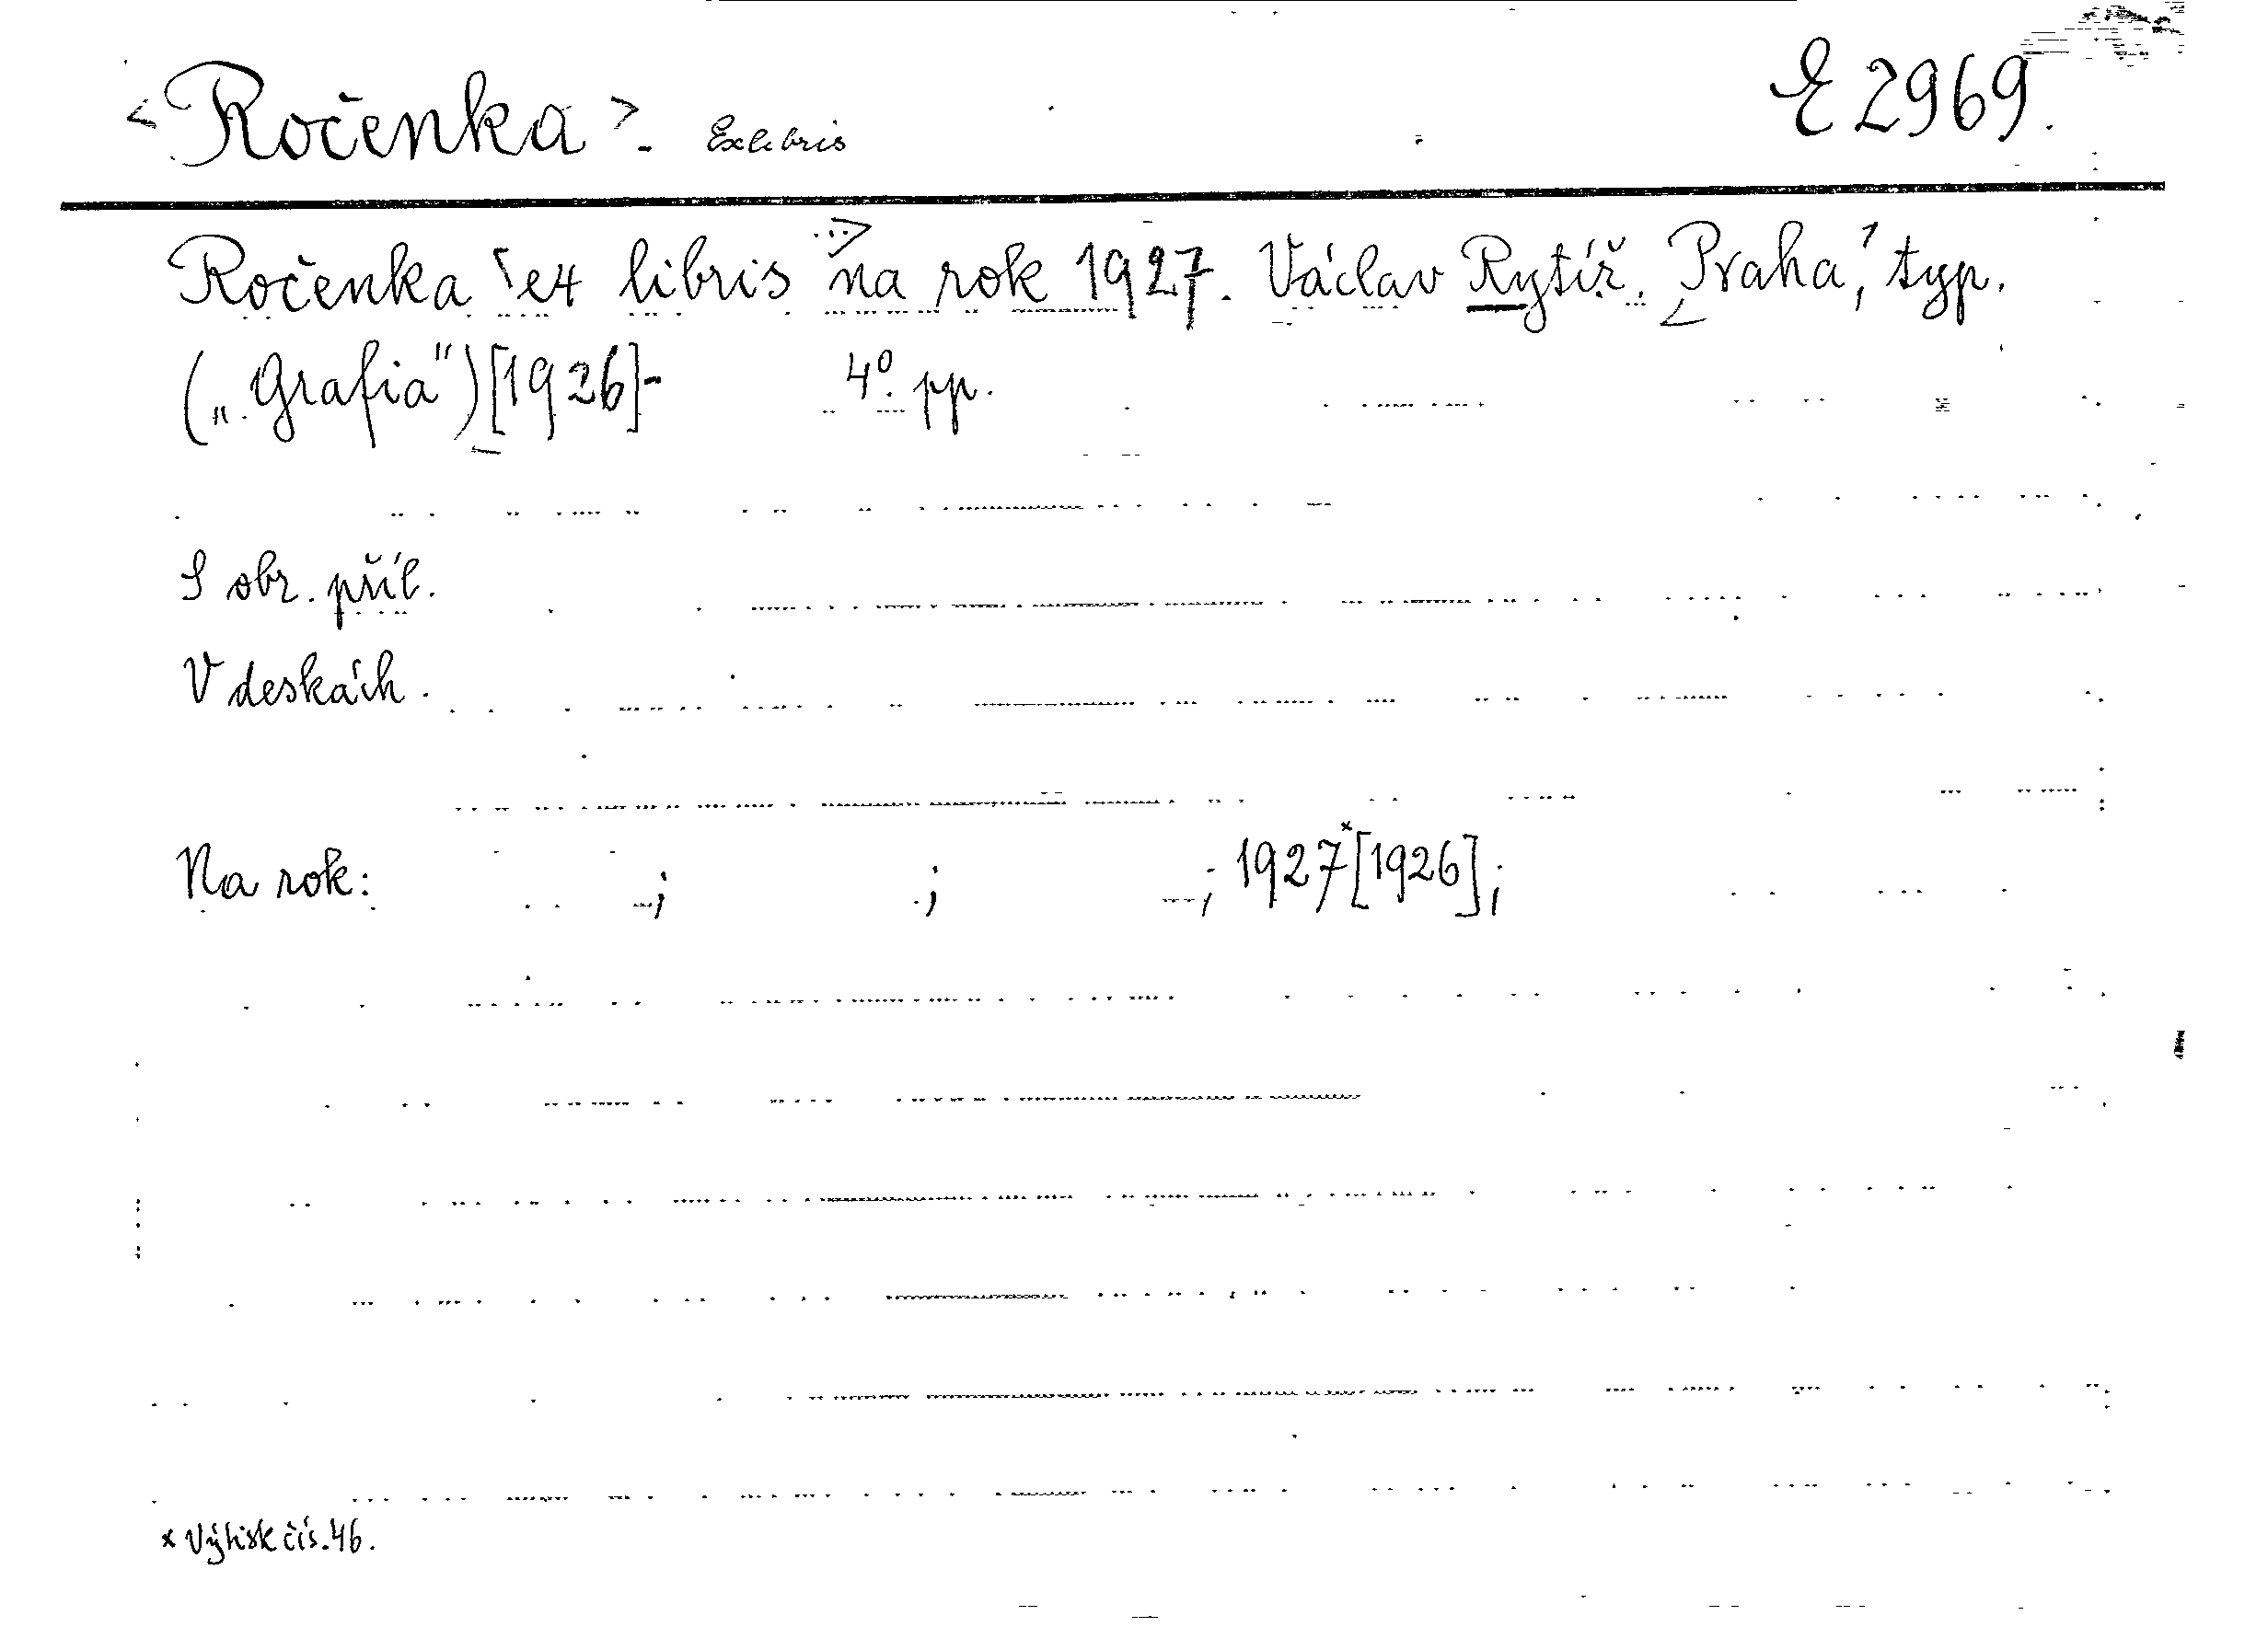 <Ročenka>. Exlibris E 2969.
Ročenka ex libris ...> na rok 1927. Václav Rytíř. Praha, typ.
(„Grafia“) [1926]- 4º. pp.
S obr. příl.
V deskách.
Na rok: ; ; ; 1927ˣ[1926];
x Výtisk čís. 46.